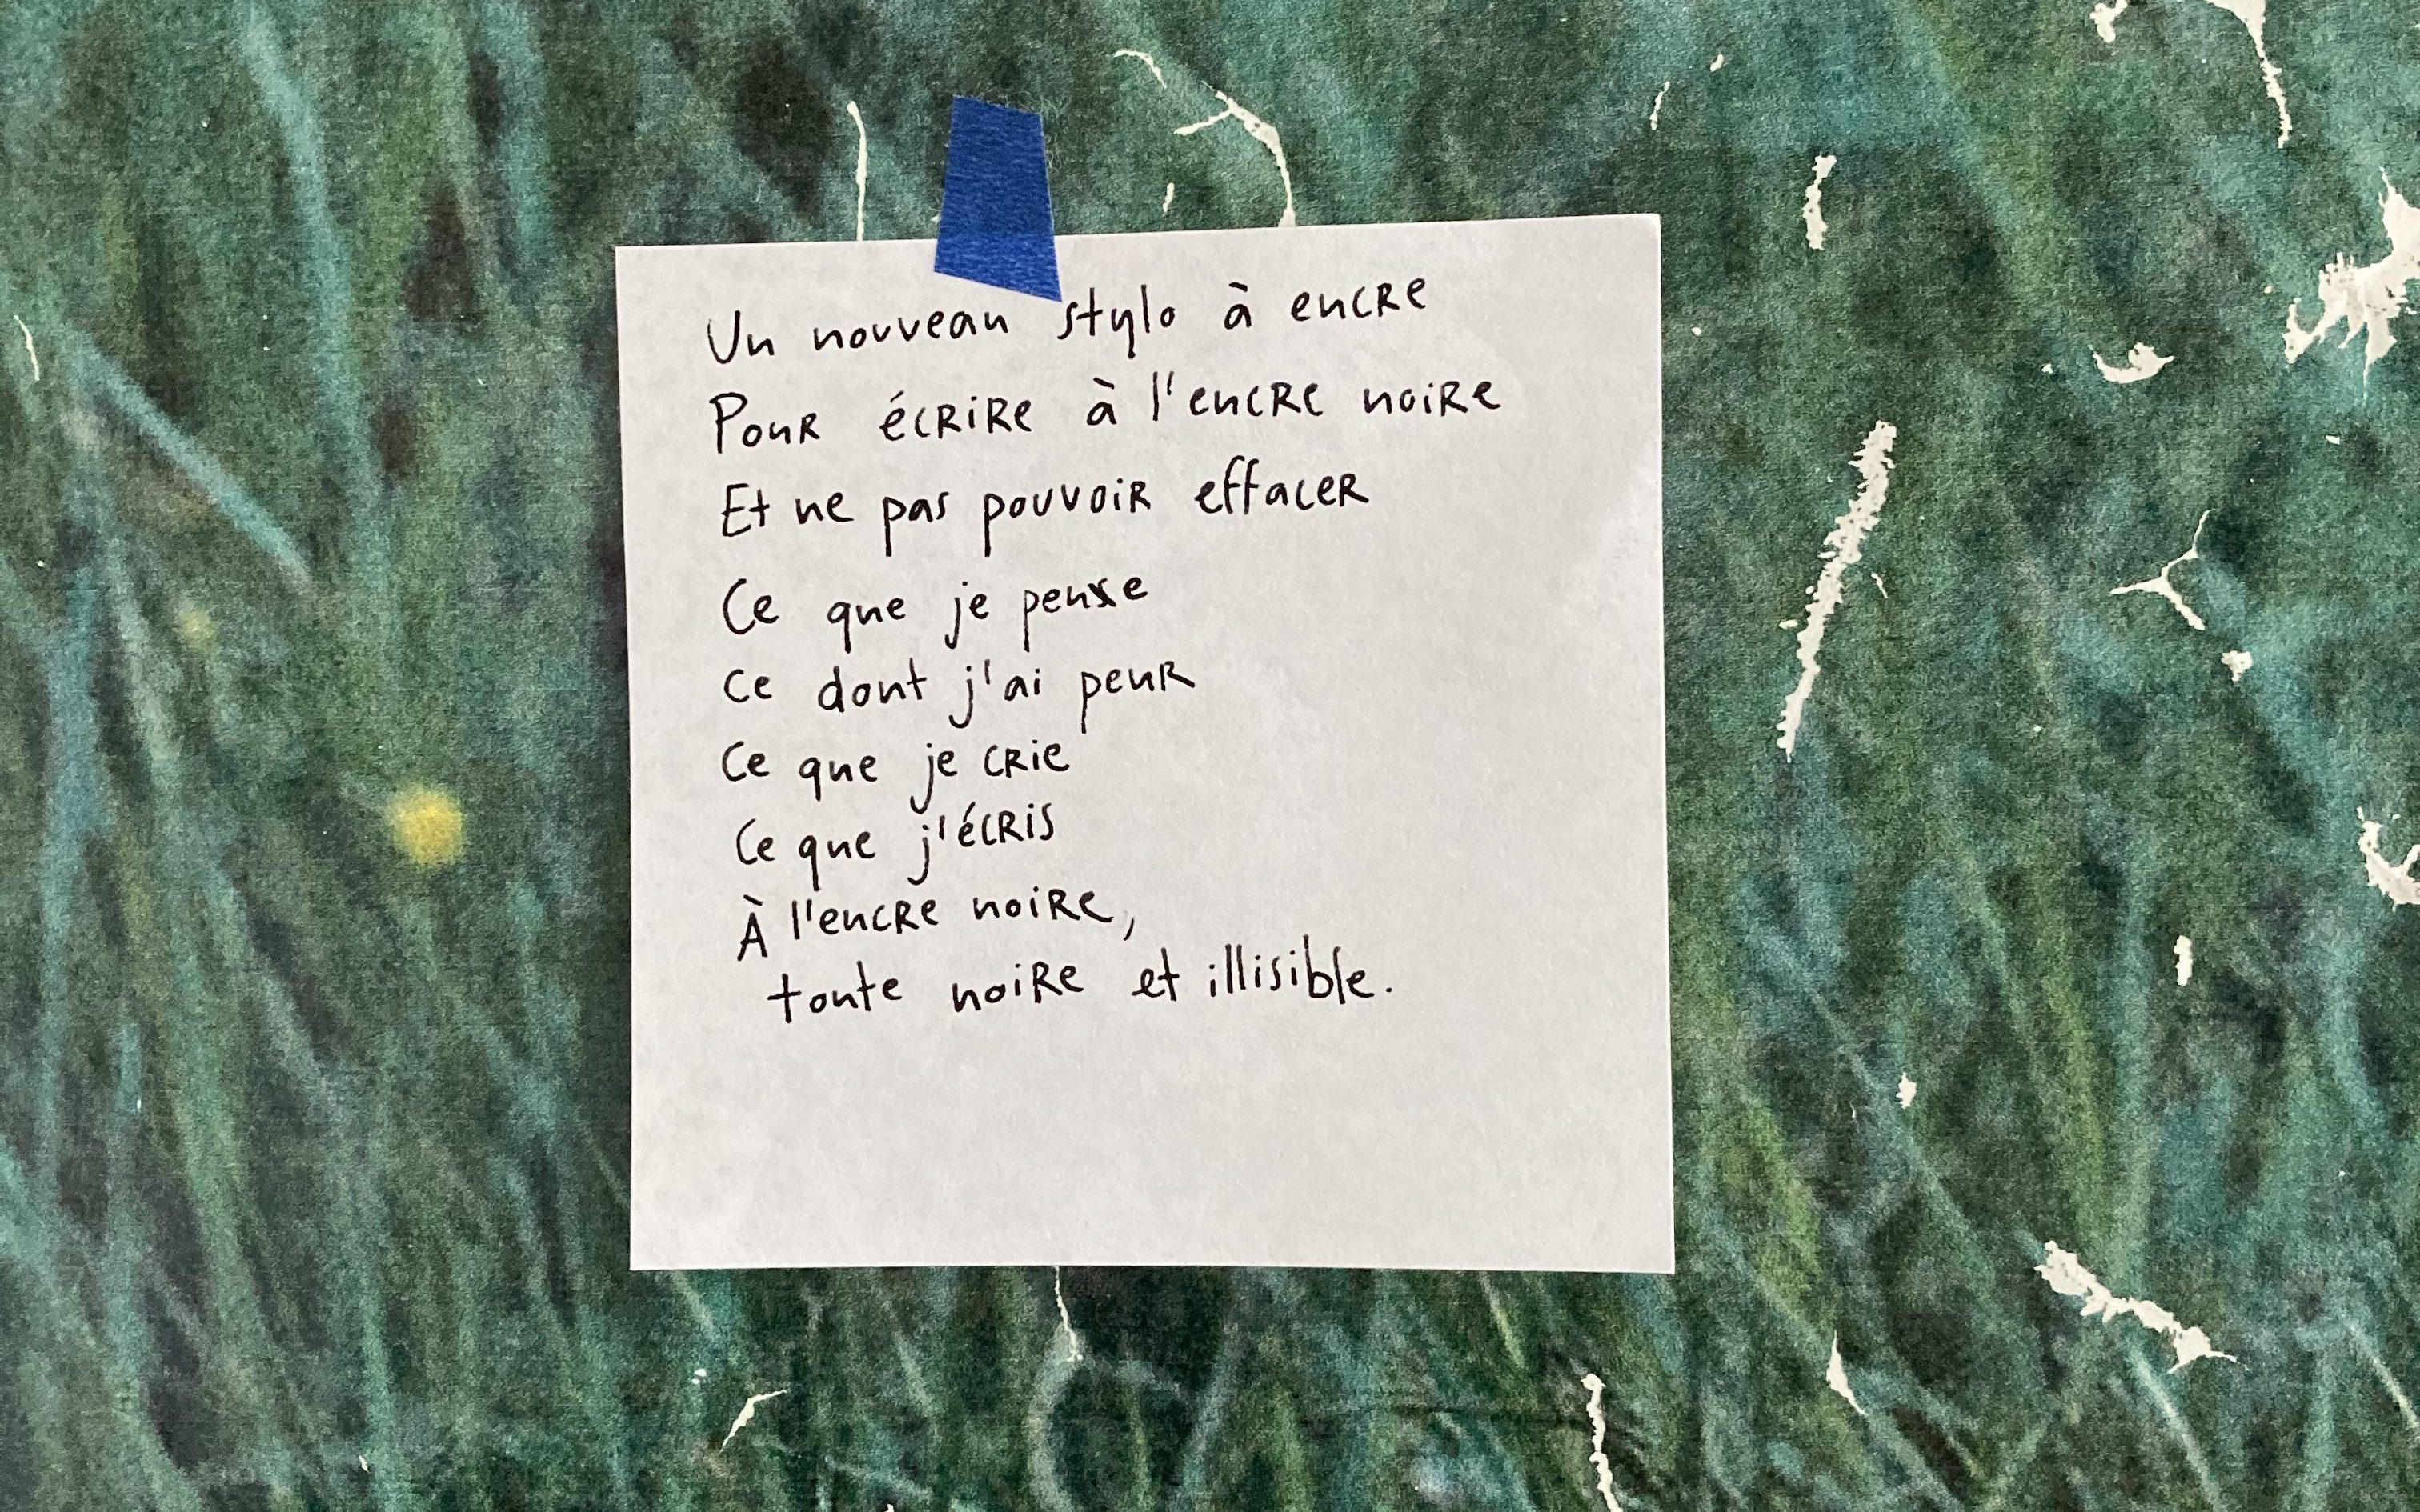 Un nouveau stylo à encre
Pour écrire à l'encre noire
Et ne pas pouvoir effacer
Ce que je pense
Ce dont j'ai peur
Ce que je crie
Ce que j'écris
À l'encre noire,
toute noire et illisible.